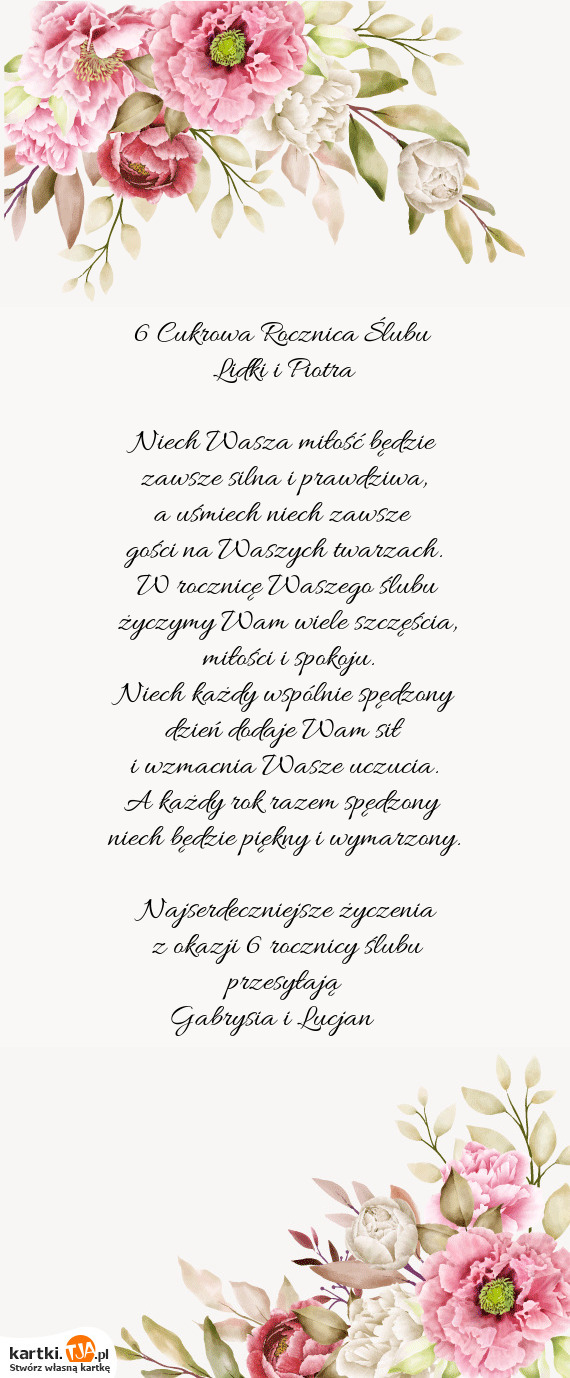 6 Cukrowa Rocznica Ślubu
Lidki i Piotra
Niech Wasza miłość będzie
zawsze silna i prawdziwa,
a uśmiech niech zawsze
gości na Waszych twarzach.
W rocznicę Waszego ślubu
życzymy Wam wiele szczęścia,
miłości i spokoju.
Niech każdy wspólnie spędzony
dzień dodaje Wam sił
i wzmacnia Wasze uczucia.
A każdy rok razem spędzony
niech będzie piękny i wymarzony.
Najserdeczniejsze życzenia
z okazji 6 rocznicy ślubu
przesyłają
Gabrysia i Lucjan
kartki.TJA.pl
Stwórz własną kartkę